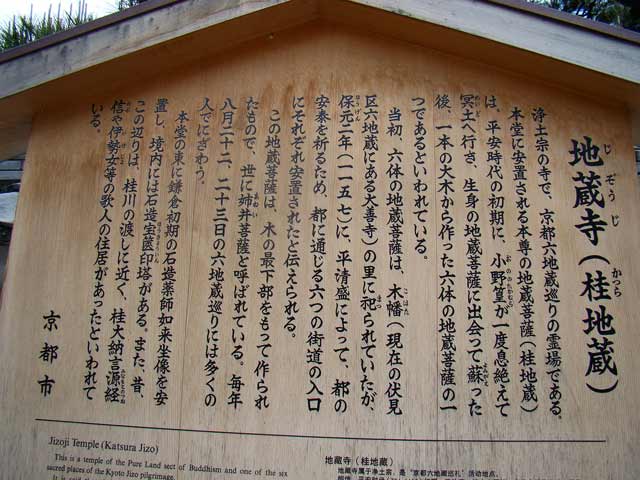 地蔵寺(桂地蔵)
浄土宗の寺で、京都六地蔵巡りの霊場である。
本堂に安置される本尊の地蔵菩薩(桂地蔵)
は、平安時代の初期に、小野篁が一度息絶えて
冥土へ行き、生身の地蔵菩薩に出会って蘇った
後、一本の大木から作った六体の地蔵菩薩の一
つであるといわれている。
当初、六体の地蔵菩薩は、木幡(現在の伏見
区六地蔵にある大善寺)の里に祀られていたが、
保元二年(一一五七)に、平清盛によって、都の
安泰を祈るため、都に通じる六つの街道の入口
にそれぞれ安置されたと伝えられる。
この地蔵菩薩は、木の最下部をもって作られ
たもので、世に姉井菩薩と呼ばれている。毎年
八月二十二、二十三日の六地蔵巡りには多くの
人でにぎわう。
本堂の東に鎌倉初期の石造薬師如来坐像を安
置し、境内には石造宝篋印塔がある。また、昔、
この辺りは、桂川の渡しに近く、桂大納言源経
信や伊勢女等の歌人の住居があったといわれて
いる。
京都市
Jizoji Temple (Katsura Jizo)
This is a temple of the Pure Land sect of Buddhism and one of the six
sacred places of the Kyoto Jizo pilgrimage.
地藏寺（桂地藏）
地藏寺属于净土宗，是“京都六地藏巡礼”活动地点。